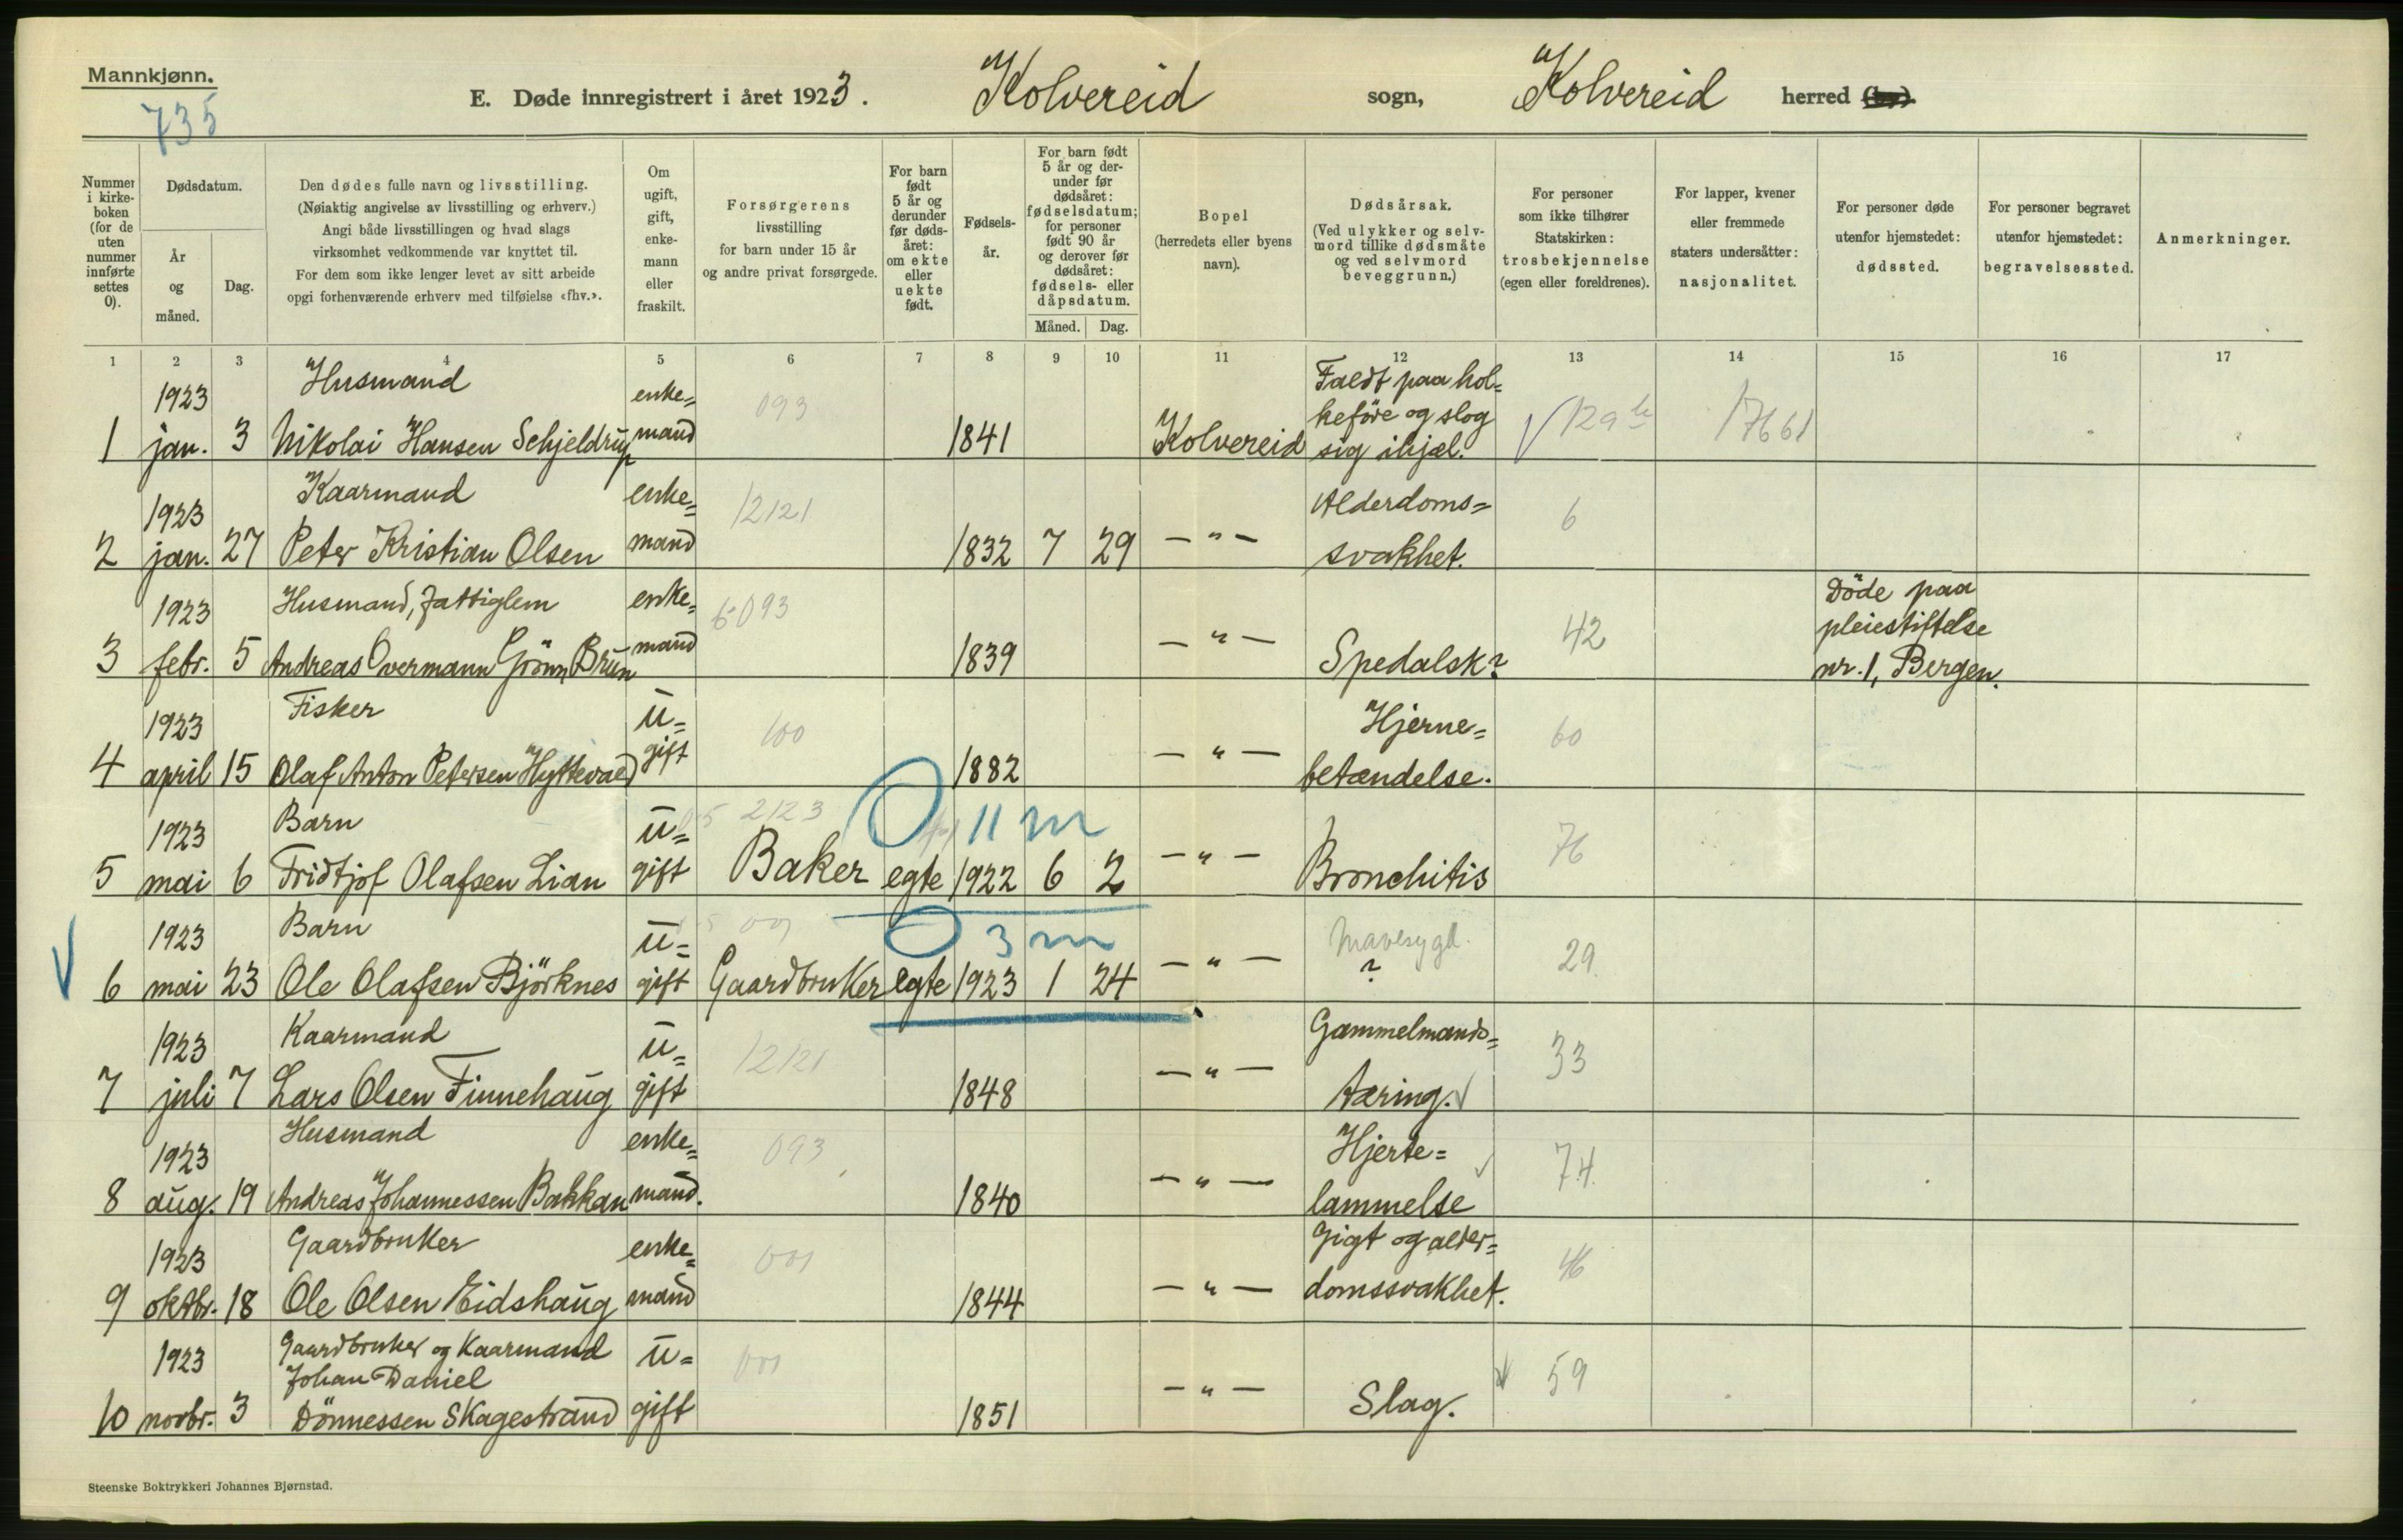 Mannkjønn.
735
E. Døde innregistrert i året 1923. Kolvereid sogn, Kolvereid herred (by).
Nummer i kirke-boken (for de uten nummer innførte settes 0).
Dødsdatum.
År og måned.
Dag.
Den dødes fulle navn og livsstilling.
(Nøiaktig angivelse av livsstilling og erhverv.)
Angi både livsstillingen og hvad slags
virksomhet vedkommende var knyttet til.
For dem som ikke lenger levet av sitt arbeide
opgi forhenværende erhverv med tilføielse «fhv.».
Om ugift, gift, enke-mann eller fraskilt.
Forsørgerens
livsstilling
for barn under 15 år
og andre privat forsørgede.
For barn født 5 år og derunder før døds-året: om ekte eller uekte født.
Fødsels-år.
For barn født 5 år og der-under før dødsåret: fødselsdatum; for personer født 90 år og derover før dødsåret: fødsels- eller dåpsdatum.
Måned. Dag.
Bopel
(herredets eller byens navn).
Dødsårsak.
(Ved ulykker og selv-mord tillike dødsmåte og ved selvmord beveggrunn.)
For personer
som ikke tilhører
Statskirken:
trosbekjennelse
(egen eller foreldrenes).
For lapper, kvener
eller fremmede
staters undersåtter:
nasjonalitet.
For personer døde
utenfor hjemstedet:
dødssted.
For personer begravet
utenfor hjemstedet:
begravelsessted.
Anmerkninger.
1 2 3 4 5 6 7 8 9 10 11 12 13 14 15 16 17
1923 Husmand enke= 093 Faldt paa hol=
keføre og slog
1 jan. 3 Nikolai Hansen Schjeldrup mand 1841 Kolvereid sig ihjel. 129 17661
1923 Kaarmand enke= 12121 Alderdoms= 6
2 jan. 27 Peter Kristian Olsen mand 1832 7 29 — " — svakhet.
1923 Husmand, fattiglem enke= 6-093 42 Döde paa
pleiestiftelse
3 febr. 5 Andreas Overmann Grönn Brun mand 1839 — " — Spedalsk? nr. 1, Bergen.
1923 Fisker u= 100 Hjerne= 60
4 april 15 Olaf Anton Petersen Hyttevaed gift 1882 — " — betændelse.
1923 Barn u= 2123 0 11 m 76
5 mai 6 Fridtjof Olafsen Lian gift Baker egte 1922 6 2 — " — Bronchitis
1923 Barn u= 001 0 3 m Mavesygd. 29
6 mai 23 Ole Olafsen Björknes gift Gaardbruker egte 1923 1 24 — " — ?
1923 Kaarmand u= 12121 Gammelmands= 33
7 juli 7 Lars Olsen Finnehaug gift 1848 — " — tæring.
1923 Husmand enke= 093 Hjerte= 74
8 aug. 19 Andreas Johannessen Bakkan mand. 1840 — " — lammelse
1923 Gaardbruker enke= 001 Gigt og alder= 46
9 oktbr. 18 Ole Olsen Eidshaug mand 1844 — " — domssvakhet.
1923 Gaardbruker og Kaarmand u= 001 59
Johan Daniel
10 novbr. 3 Dönnessen Skagestrand gift 1851 — " — Slag.
Steenske Boktrykkeri Johannes Bjørnstad.